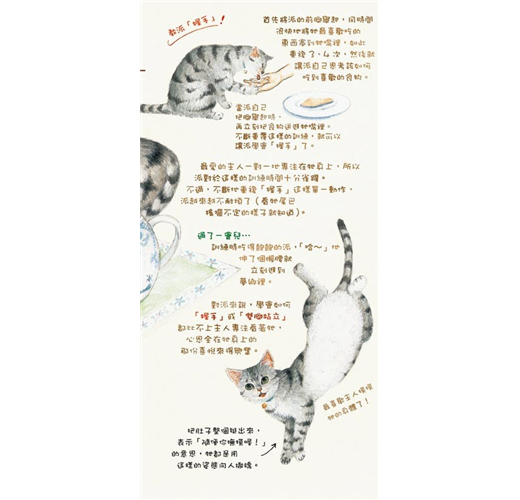 教派「握手」!
首先將派的前腳舉起,同時間
很快地將牠最喜歡吃的
東西塞到牠嘴裡,如此
重複了3、4次,然後就
讓派自己思考該如何
吃到喜歡的食物。
當派自己
把腳舉起時,
再立刻把食物送進牠嘴裡。
不斷重覆這樣的訓練,就可以
讓派學會「握手」了。
最愛的主人一對一地專注在牠身上,所以
派對於這樣的訓練時間十分雀躍。
不過,不斷地重複「握手」這樣單一動作,
派越來越不耐煩了(看牠尾巴
搖擺不定的樣子就知道)。
過了一會兒…
訓練時吃得飽飽的派,「哈~」地
伸了個懶腰就
立刻進到
夢鄉裡。
對派來說,學會如何
「握手」或「雙腳站立」
都比不上主人專注看著牠,
心思全在牠身上的
那份喜悅來得興奮。
最喜歡主人摸摸
牠的身體了!
把肚子整個挺出來,
表示「請你撫摸喔!」
的意思,牠都是用
這樣的姿態向人撒嬌。